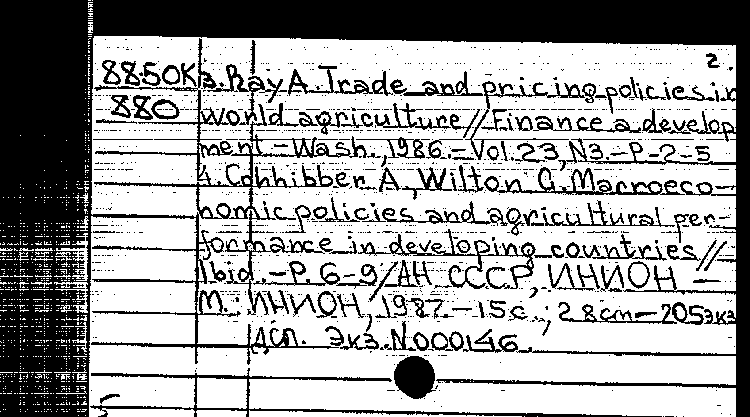 2.
8850К 3. Ray A. Trade and pricing policies in
880 world agriculture // Finance a develop
ment - Wash., 1986. - Vol. 23, N3. - P. 2-5
4. Cohhibber A., Wilton G. Macroeco-
nomic policies and agricultural per-
formance in developing countries //
Ibid. - P. 6-9 / АН СССР, ИНИОН -
М.: ИНИОН, 1987. - 15с.; 28cm - 205экз
Дсп. Экз. N000146.